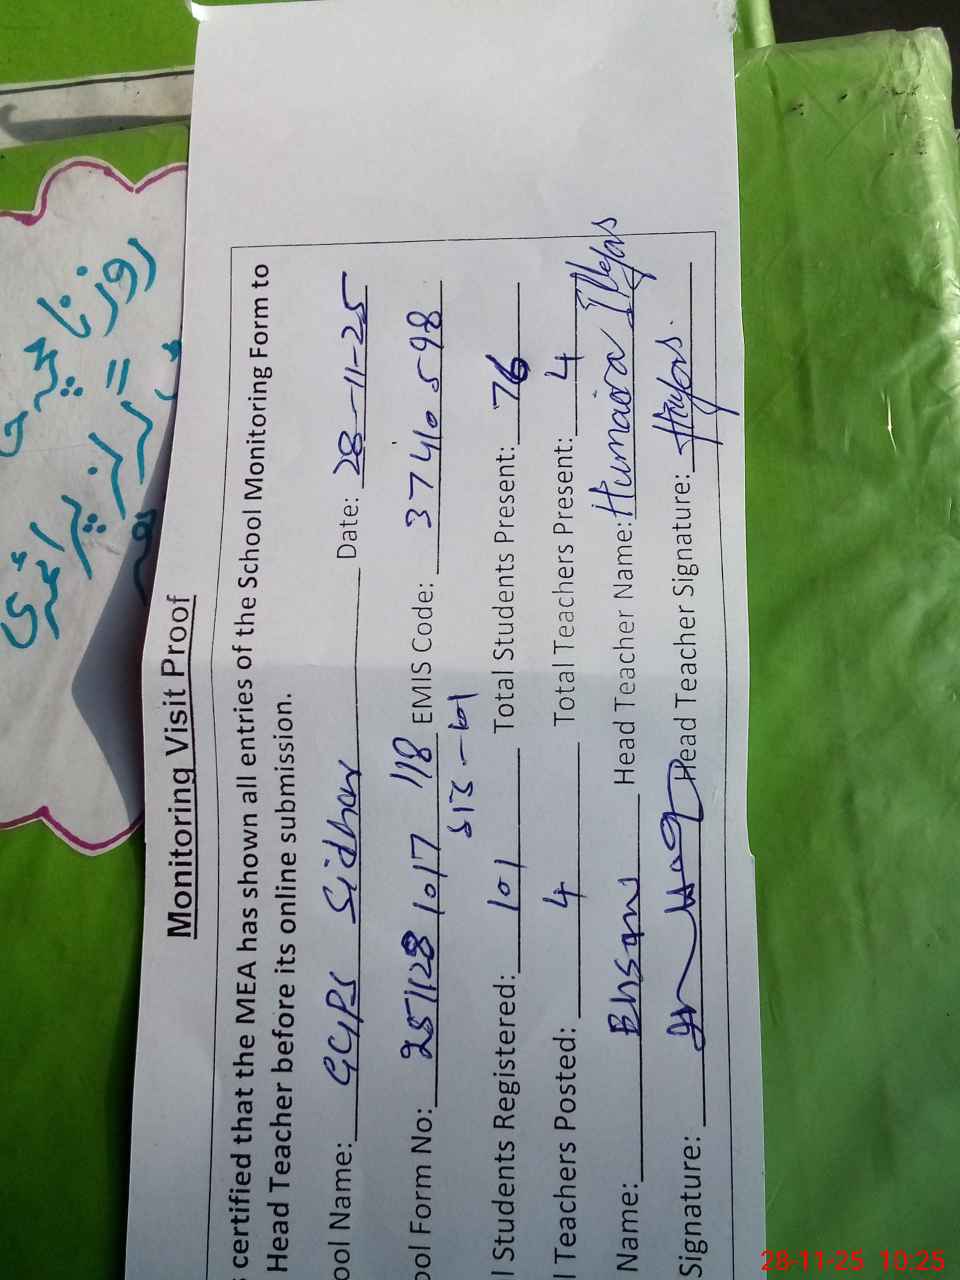 Monitoring Visit Proof
certified that the MEA has shown all entries of the School Monitoring Form to
Head Teacher before its online submission.
ool Name: GGPS Sidhar Date: 28-11-25
ool Form No: 251128 1017 118 EMIS Code: 37410598
SIS-101
l Students Registered: 101 Total Students Present: 76
l Teachers Posted: 4 Total Teachers Present: 4
Name: Ehsan Head Teacher Name: Humaira Ilyas
Signature: Head Teacher Signature:
روزنامچہ
گرلز پرائمری
28-11-25 10:25